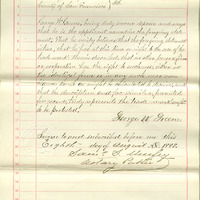 County of San Francisco } ss.
George W. Greene, being duly sworn deposes and says
that he is the applicant named in the foregoing state-
ment; that he verily believes that the foregoing statement
is true, that he has at this time a right to the use of the
trade mark therein described, that no other person, firm
or corporation has the right to such use, either in
the identical form or in any such near resem-
blance thereto as might be calculated to deceive, and
that the description and facsimiles presented
for record truly represents the trade mark sought
to be protected.
George W. Greene
Sworn to and subscribed before me this
Eighth day of August A.D. 188
Notary Public